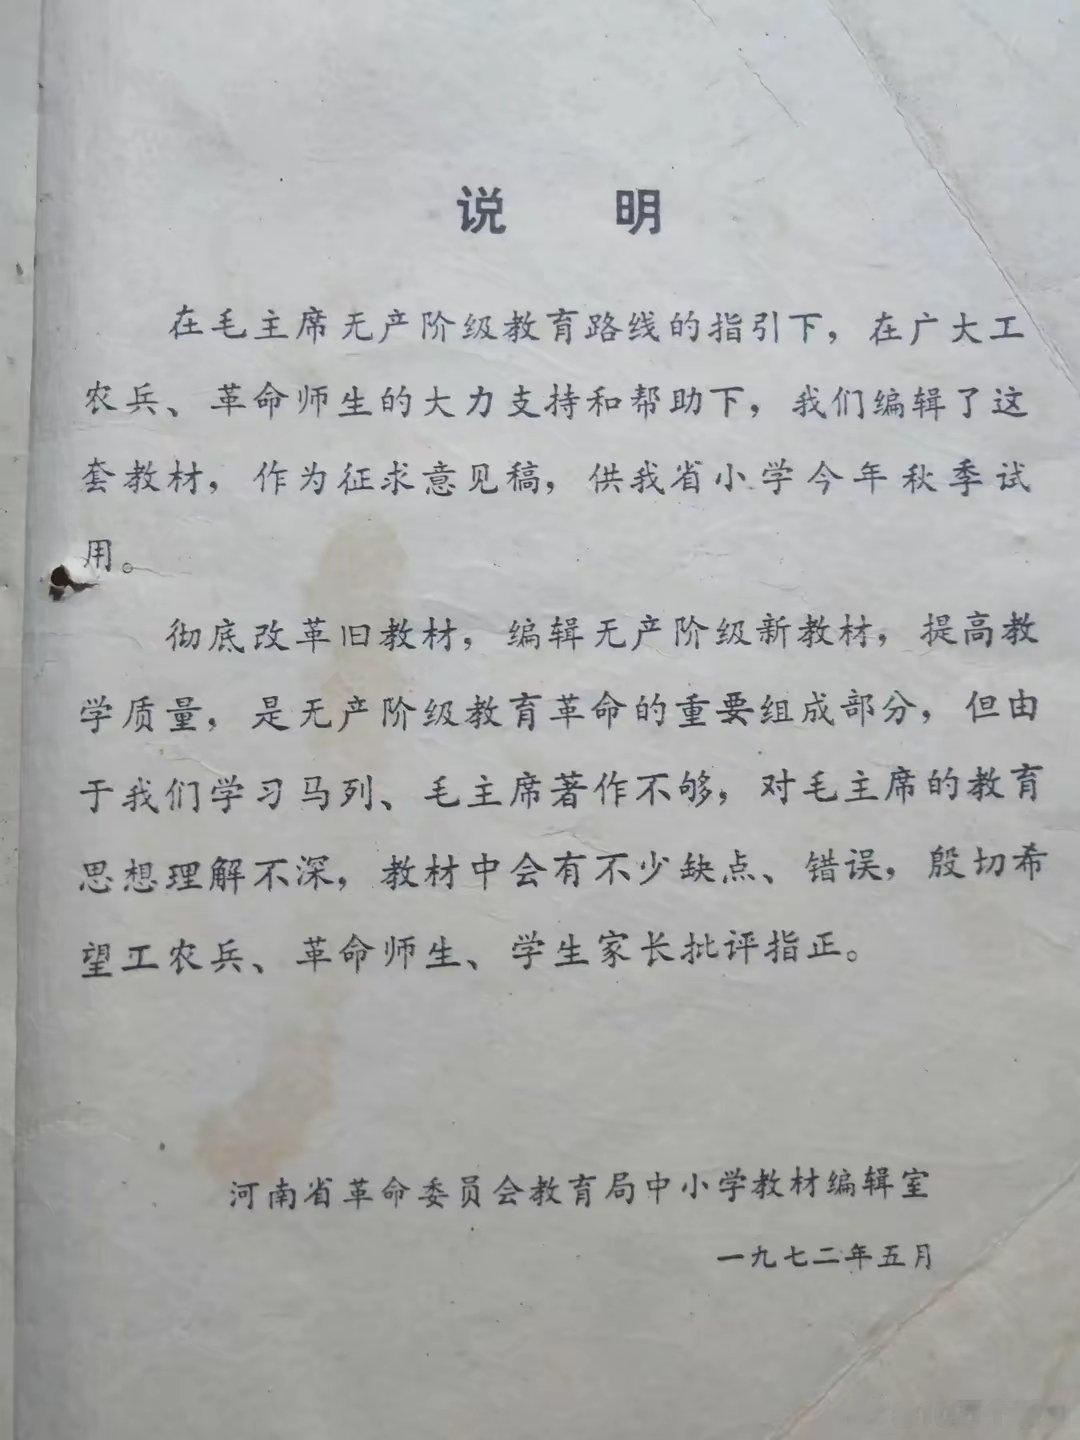 说 明
在毛主席无产阶级教育路线的指引下，在广大工
农兵、革命师生的大力支持和帮助下，我们编辑了这
套教材，作为征求意见稿，供我省小学今年秋季试
用。
彻底改革旧教材，编辑无产阶级新教材，提高教
学质量，是无产阶级教育革命的重要组成部分，但由
于我们学习马列、毛主席著作不够，对毛主席的教育
思想理解不深，教材中会有不少缺点、错误，殷切希
望工农兵、革命师生、学生家长批评指正。
河南省革命委员会教育局中小学教材编辑室
一九七二年五月